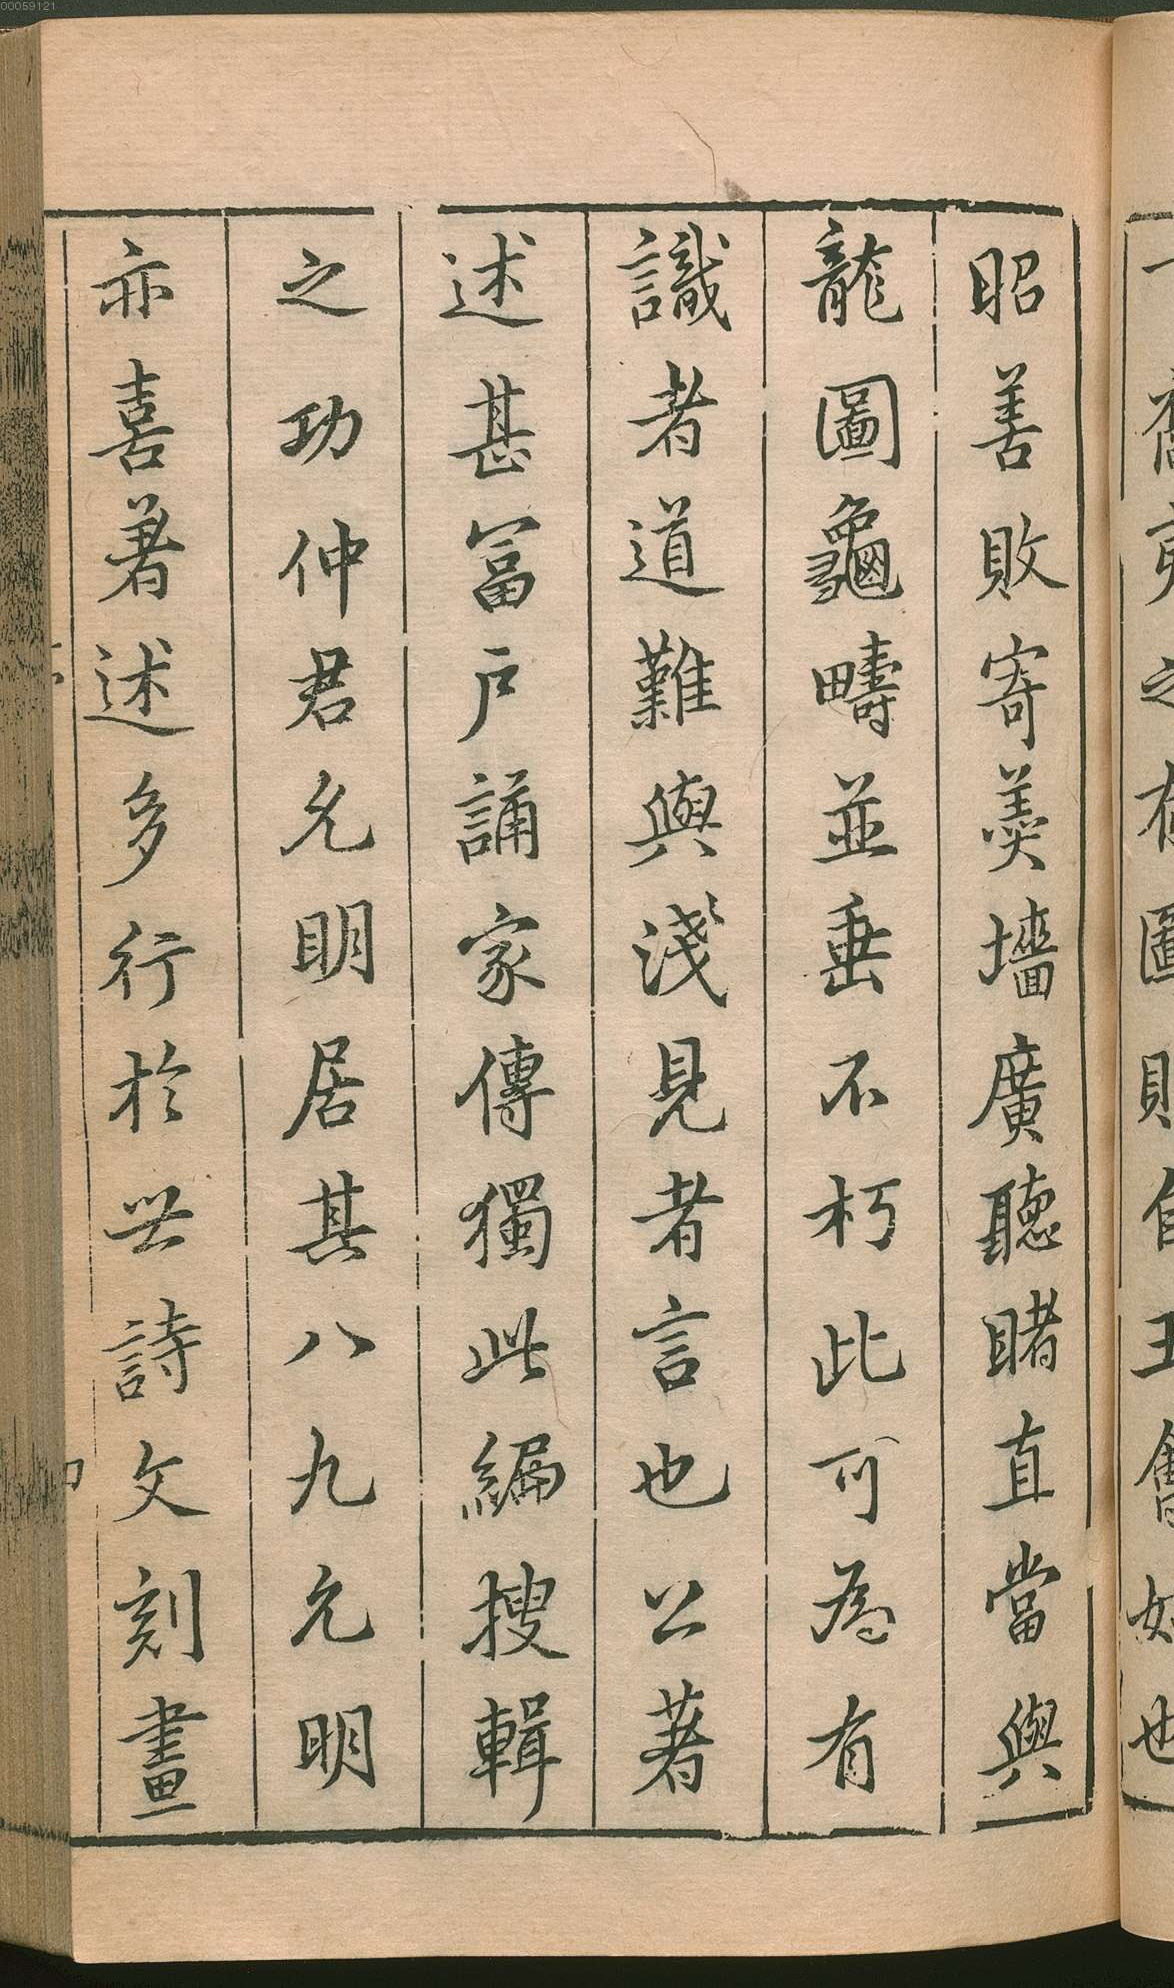 昭善敗寄羮墻廣聽睹直當與
龍圖龜疇並垂不朽此可為有
識者道難與淺見者言也公著
述甚冨戸誦家傳獨此編搜輯
之功仲君允明居其八九允明
亦喜著述多行於世詩文刻畫
00059121